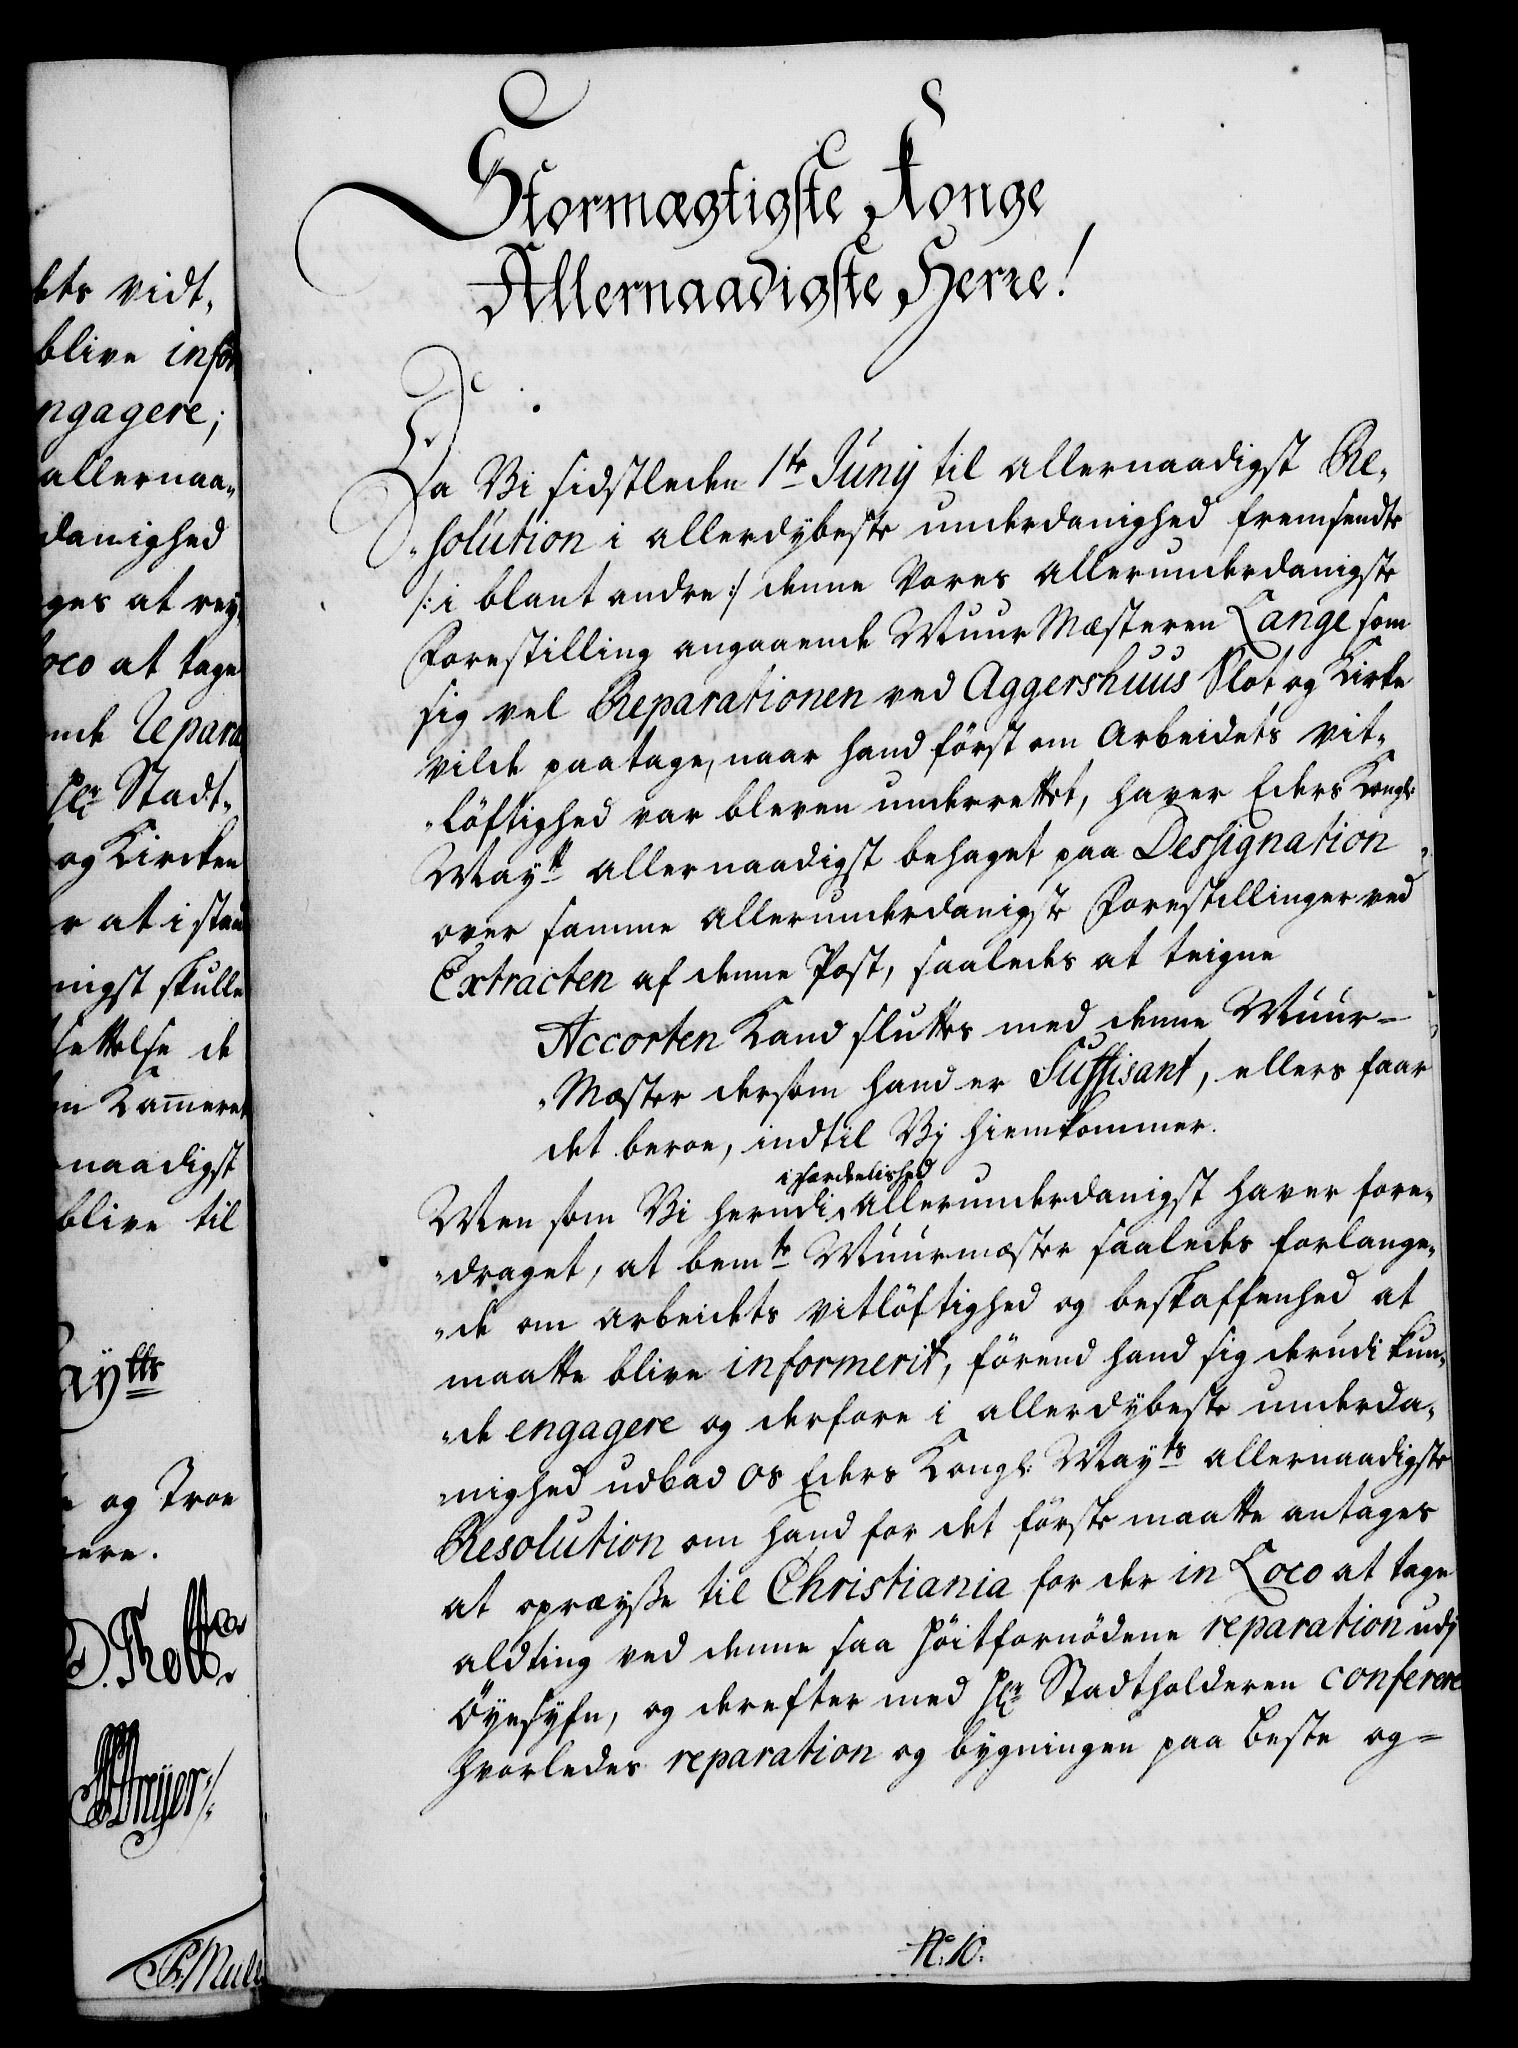 Stormægtigste Konge
Allernaadigste Herre!
Da Vi sidstleden 1te Junij til allernaadigst Re„
„solution i allerdybeste underdanighed fremsendte
/: i blant andre :/ denne Vores allerunderdanigste
Forestilling angaaende Muur Mæsteren Lange som
sig vel Reparationen ved Aggershuus Slot og Kirke
vilde paatage, naar hand först om Arbeidets vit„
„löftighed var bleven underrettet, haver Eders Kongl:
Maytt allernaadigst behaget paa Dessignation
over samme allerunderdanigste Forestillinger ved
Extracten af denne Post, saaledes at teigne
Accorten Kand sluttes med denne Muur=
„Mæster dersom hand er Suffisant, ellers faar
det beroe, indtil Vi hiemkommer.
i særdeelished
Men som Vi herudi allerunderdanigst haver fore„
„draget, at bemte Muurmæster saaledes forlange„
„de om arbeidets vitlöftighed og beskaffenhed at
maatte blive informerit, förend hand sig derudi kun„
„de engagere og derfore i allerdybeste underda„
„nighed udbad os Eders Kongl: Mayts allernaadigste
Resolution om hand for det förste maatte antages
at opreyse til Christiania for der in Loco at tage
alting ved denne saa höitfornödene reparation udj
Öyesyfn, og derefter med Hr Stadtholderen conferere
hvorledes reparation og bygningen paa beste og=
N: 10.
ets vidt„
blive infor
ngagere;
allernaa„
danighed
ges at rey„
oco at tage
nde repara
Hr Stadt„
og Kircken
r at i stan
nigst skulle
settelse de
n Kammeret
naadigst
blive til
aytts
og Troe
ere.
Thott
Dreyer
Mull